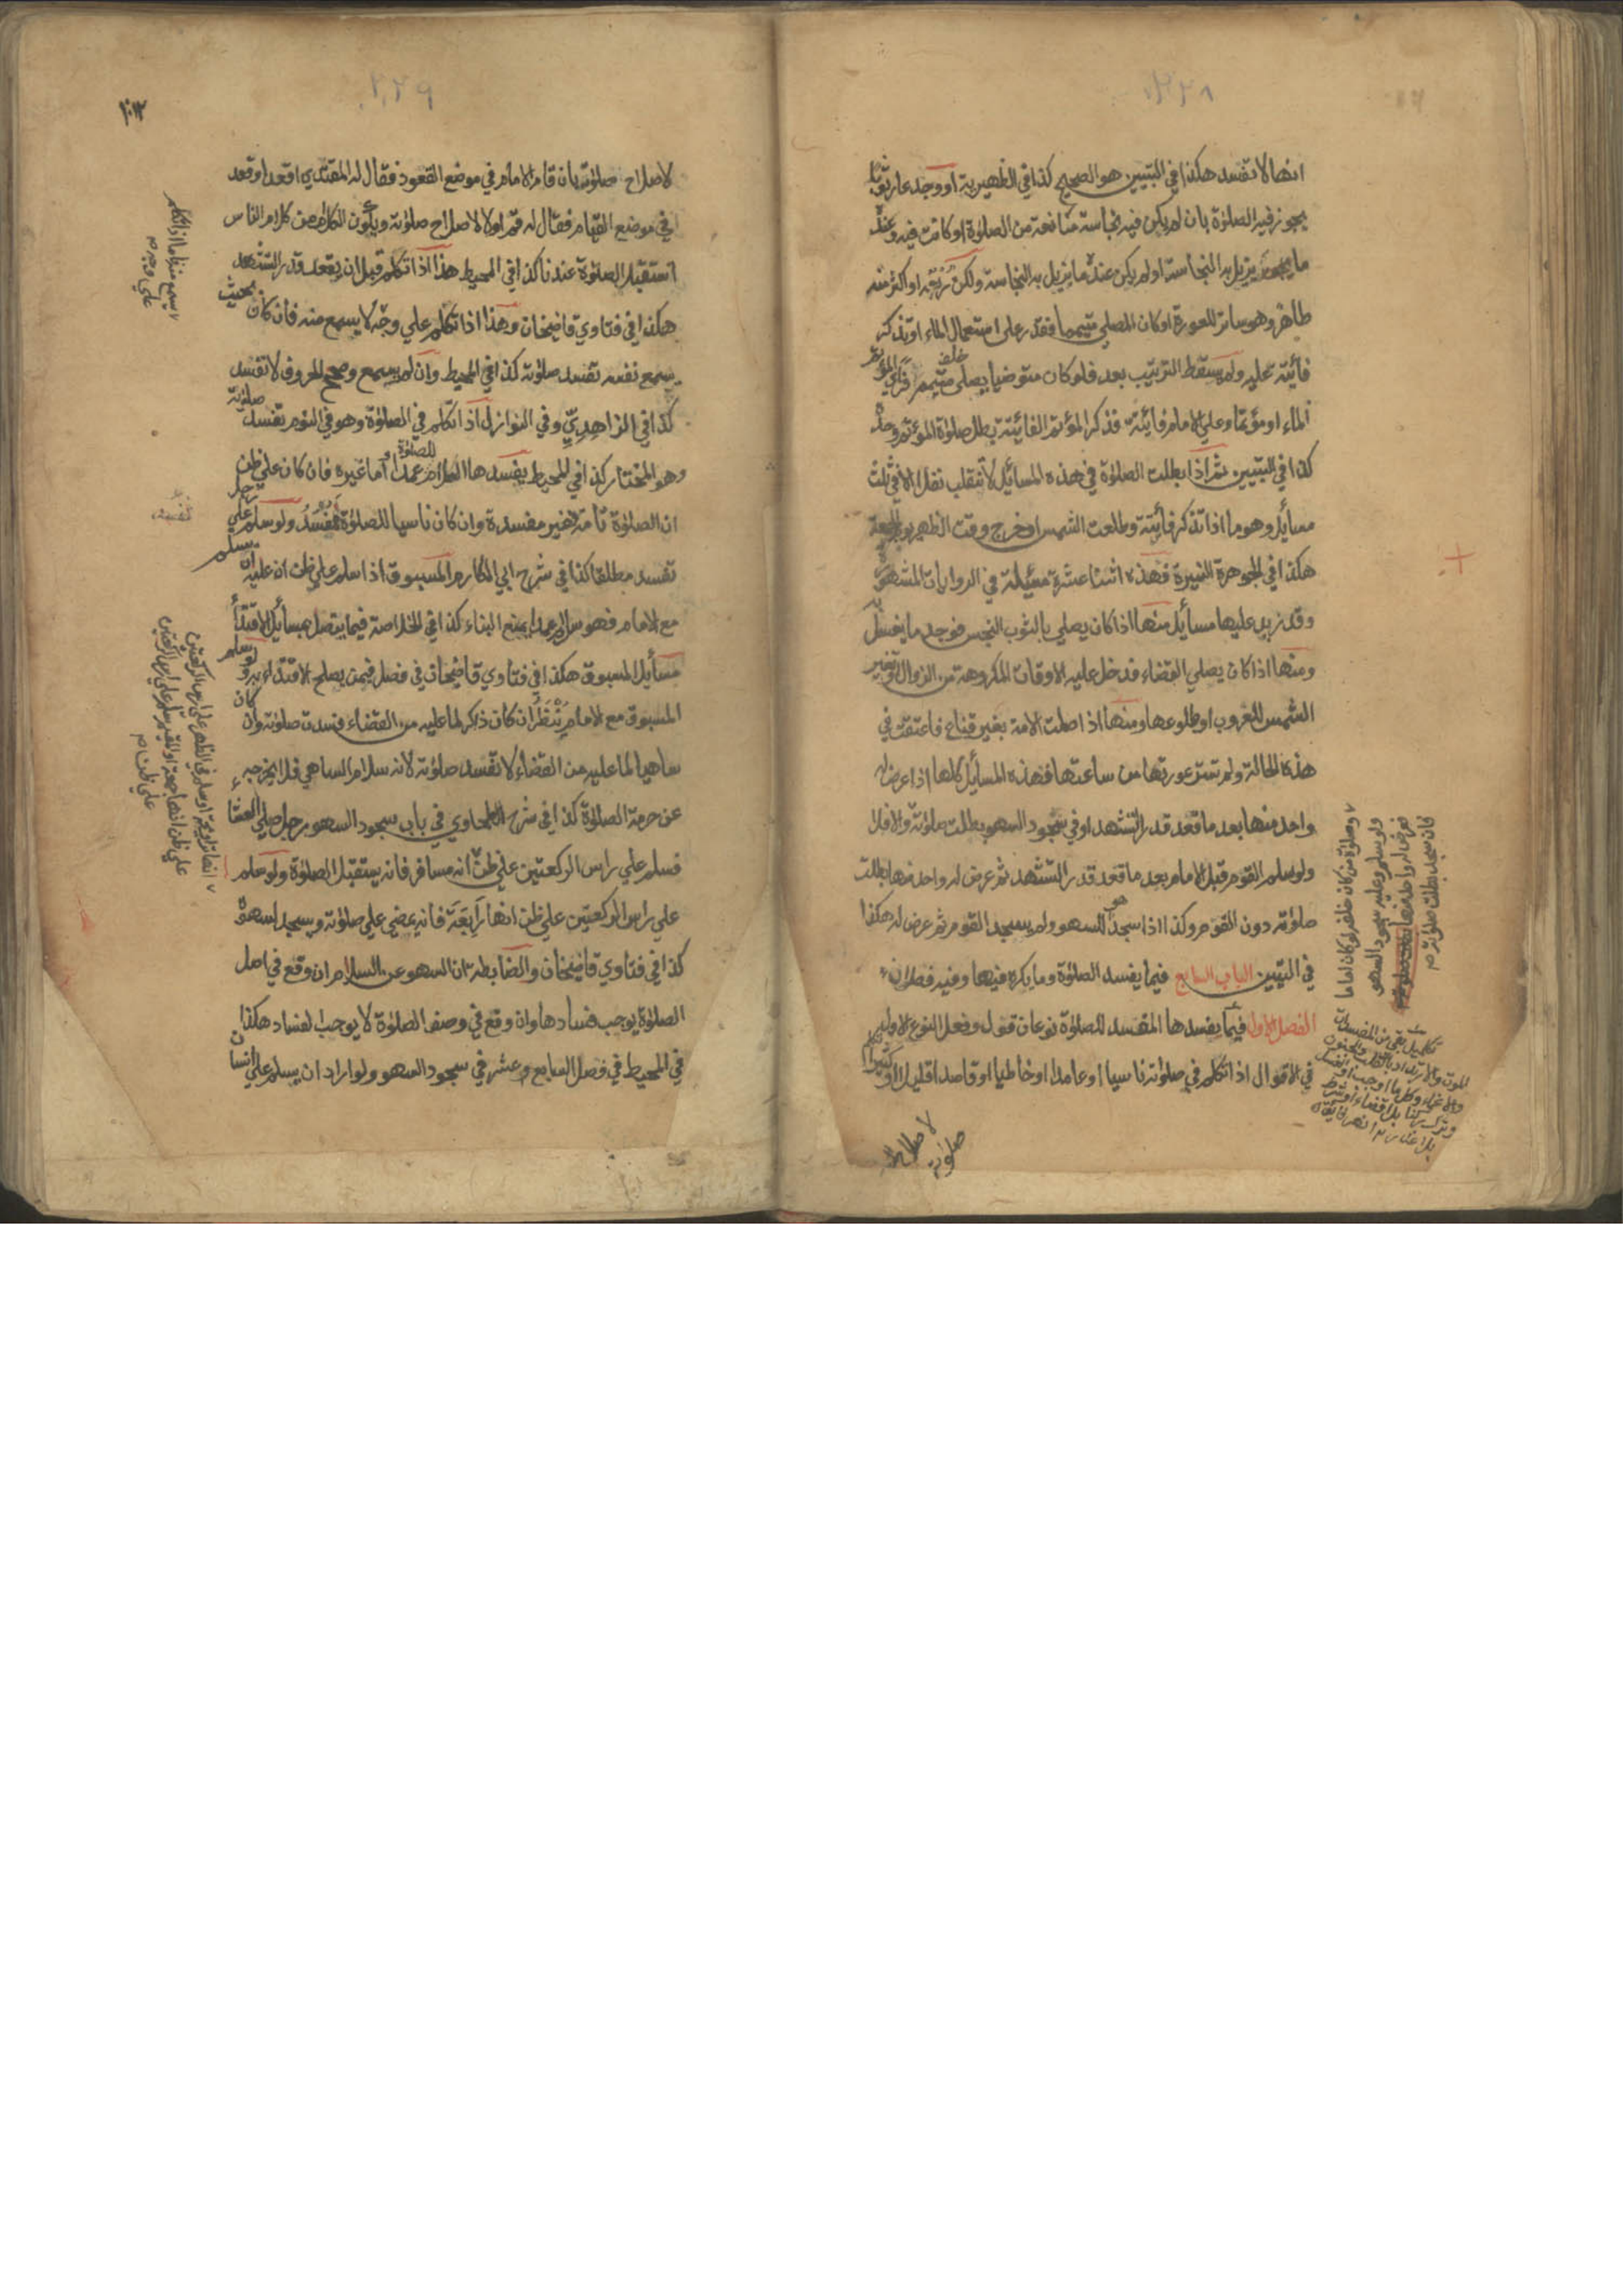 انها لا تفسد هكذا في التبيين هو الصحيح كذا في الظهيرية او وجد عار ثوبا
يجوز فيه الصلوة بان لم يكن فيه نجاسة مانعة من الصلوة او كانت فيه وعنده
ما يزيل به النجاسة او لم يكن عنده ما يزيل به النجاسة ولكن ربعه او اكثر منه
طاهر وهو ساتر للعورة او كان المصلي متيمما فقدر علي استعمال الماء او تذكر
فائتة عليه ولم يسقط الترتيب بعد فلو كان متوضيا يصلي خلف متيمم فراي المؤتم
الماء او مؤتما وعلي الامام فائتة فذكر المؤتم الفائتة بطل صلوة المؤتم وحده
كذا في التبيين ثم اذا بطلت الصلوة في هذه المسائل لا تنقلب نفلا الا في ثلث
مسائل وهو ما اذا تذكر فائتة وطلعت الشمس او خرج وقت الظهر يوم الجمعة
هكذا في الجوهرة النيرة فهذه اثنتا عشرة مسئلة في الروايات المشهورة
وقد زيد عليها مسائل منها اذا كان يصلي بالثوب النجس فوجد ما يغسل به
ومنها اذا كان يصلي القضاء فدخل عليه الاوقات المكروهة من الزوال وتغير
الشمس للغروب او طلوعها ومنها اذا صلت الامة بغير قناع فاعتقت في
هذه الحالة ولم تستر عورتها من ساعتها فهذه المسائل كلها اذا عرض له
واحد منها بعد ما قعد قدر التشهد او في سجود السهو بطلت صلوته والا فلا
ولو سلم القوم قبل الامام بعد ما قعد قدر التشهد ثم عرض له واحد منها بطلت
صلوته دون القوم وكذا اذا سجد هو للسهو ولم يسجد القوم ثم عرض له هكذا
في التبيين الباب السابع فيما يفسد الصلوة وما يكره فيها وفيه فصلان
الفصل الاول فيما يفسدها المفسد للصلوة نوعان قول وفعل النوع الاول
في الاقوال اذا تكلم في صلوته ناسيا او عامدا او خاطيا او قاصدا قليلا او كثيرا
وصلوة من كان خلفه لو كان اماما
ولو سلم وعليه سجود السهو
فعرض له واحد منها
فان سجد بطلت صلوته م
لاصلاح
صلوته
٢٢٨
٢٢٩
١٠٣
لاصلاح صلوته بان قام الامام في موضع القعود فقال له المقتدي اقعد او قعد
في موضع القيام فقال له قم او لا لاصلاح صلوته ويكون الكلام من كلام الناس
استقبل الصلوة عندنا كذا في المحيط هذا اذا تكلم قبل ان يقعد قدر التشهد
هكذا في فتاوي قاضيخان وهذا اذا تكلم علي وجه لا يسمع منه فان كان بحيث
يسمع نفسه تفسد صلوته كذا في المحيط وان لم يسمع وصحح الحروف لا تفسد
كذا في الزاهدي وفي النوازل اذا تكلم في الصلوة وهو في النوم تفسد صلوته
وهو المختار كذا في المحيط يفسدها السلام عمدا و اما غيره فان كان علي ظن
ان الصلوة تامة فغير مفسدة وان كان ناسيا للصلوة ولو سلم علي رجل
تفسد مطلقا كذا في شرح ابي المكارم المسبوق اذا سلم علي ظن ان عليه ان يسلم
مع الامام فهو سلام عمدا يمنع البناء كذا في الخلاصة فيما يتصل بمسائل الاقتداء
مسائل المسبوق هكذا في فتاوي قاضيخان في فصل فيمن يصلح الاقتداء به ولو سلم
المسبوق مع الامام ينظر ان كان ذاكرا لما عليه من القضاء فسدت صلوته وان كان
ساهيا لما عليه من القضاء لا تفسد صلوته لانه سلام الساهي فلا يخرجه
عن حرمة الصلوة كذا في شرح الطحاوي في باب سجود السهو رجل صلي العشاء
فسلم علي راس الركعتين علي ظن انه مسافر فانه يستقبل الصلوة ولو سلم
علي راس الركعتين علي ظن انها رابعة فانه يمضي علي صلوته ويسجد لسهوه
كذا في فتاوي قاضيخان والضابطة ان السهو عن السلام ان وقع في اصل
الصلوة يوجب فسادها وان وقع في وصف الصلوة لا يوجب الفساد هكذا
في المحيط في فصل السابع وعشر في سجود السهو ولو اراد ان يسلم علي انسان
علي وجه م
علي ظن م